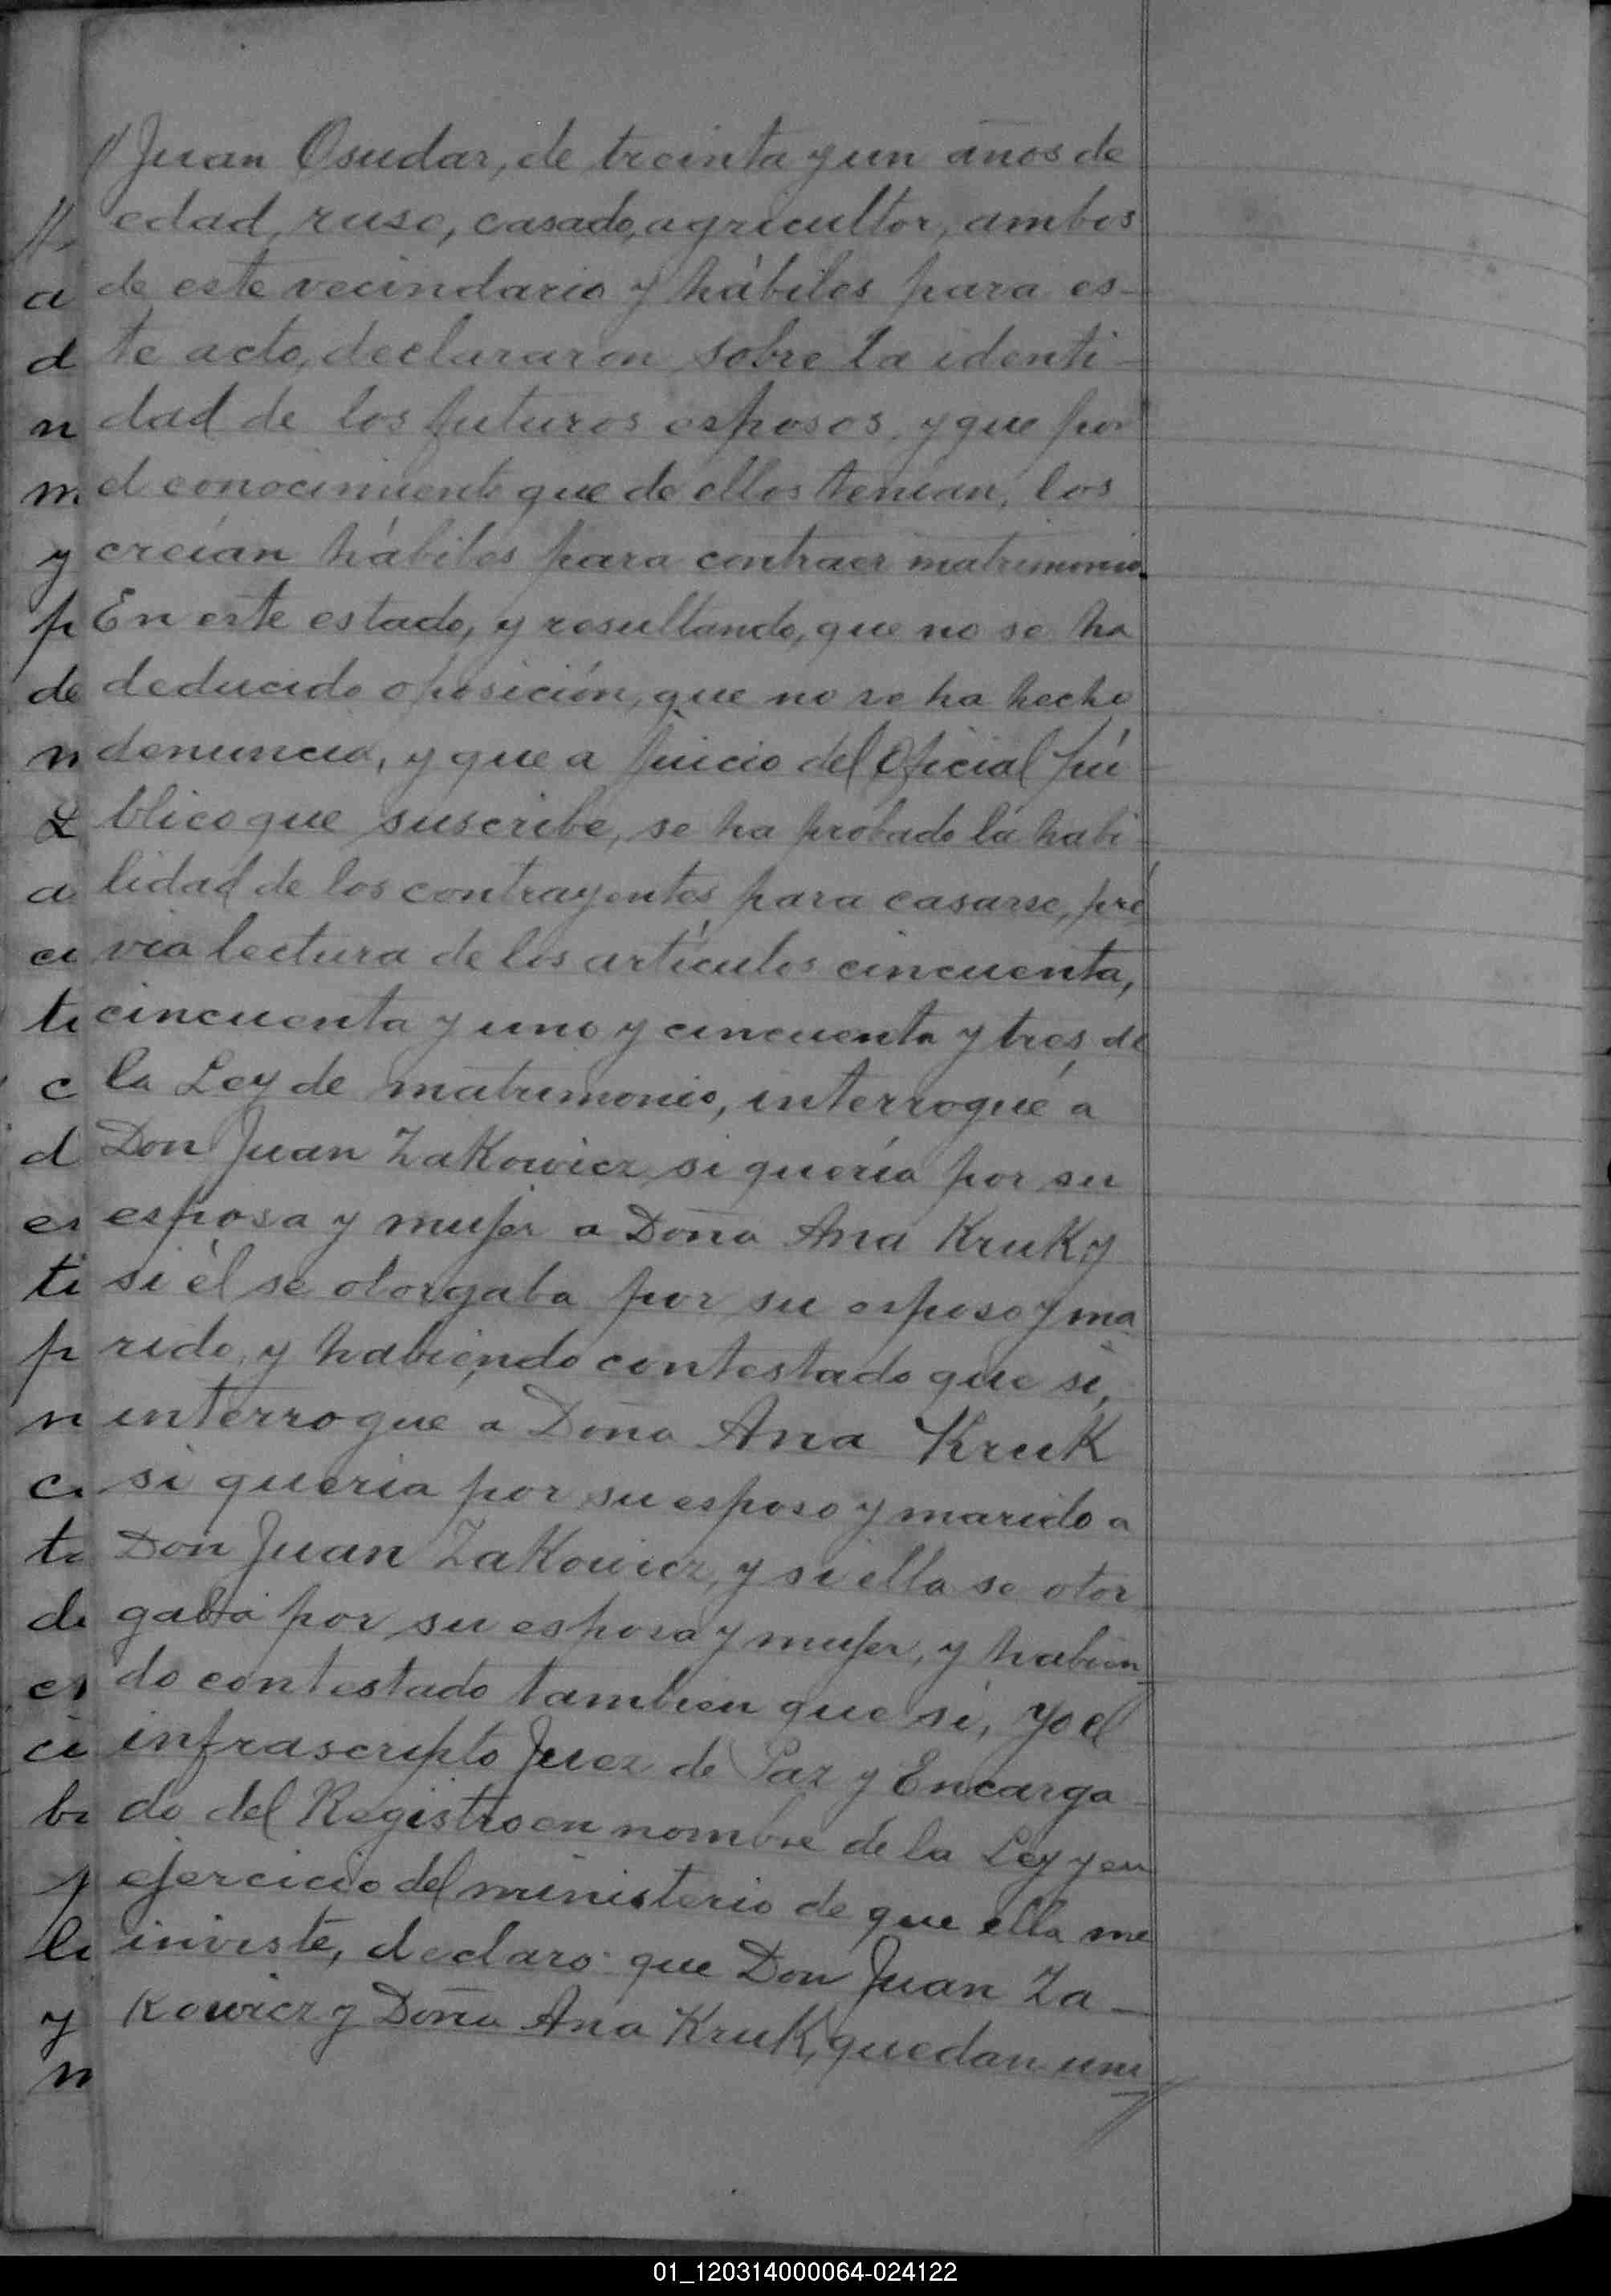 // Juan Osudar, de treinta y un años de
edad, ruso, casado, agricultor, ambos
de este vecindario y hábiles para es-
te acto, declararon sobre la identi-
dad de los futuros esposos, y que por
el conocimiento que de ellos tenían, los
creían hábiles para contraer matrimonio.
En este estado, y resultando, que no se ha
deducido oposición, que no se ha hecho
denuncia, y que a juicio del Oficial pú-
blico que suscribe, se ha probado la habi-
lidad de los contrayentes para casarse, pré
via lectura de los artículos cincuenta,
cincuenta y uno y cincuenta y tres, de
la Ley de matrimonio, interrogué a
Don Juan Zakowicz si quería por su
esposa y mujer a Doña Ana Kruk y
si él se otorgaba por su esposo y ma
rido, y habiendo contestado que si,
interrogue a Doña Ana Kruk
si queria por su esposo y marido a
Don Juan Zakowicz, y si ella se otor
gaba por su esposa y mujer, y habien
do contestado tambien que si, Yo el
infrascripto Juez de Paz y Encarga-
do del Registro en nombre de la Ley y en
ejercicio del ministerio de que ella me
inviste, declaro que Don Juan Za-
kowicz y Doña Ana Kruk, quedan uni
//
a
d
n
m
y
p
de
n
a
ti
c
d
es
ti
p
n
ci
te
de
es
ci
br
y
li
y
n
01_120314000064-024122